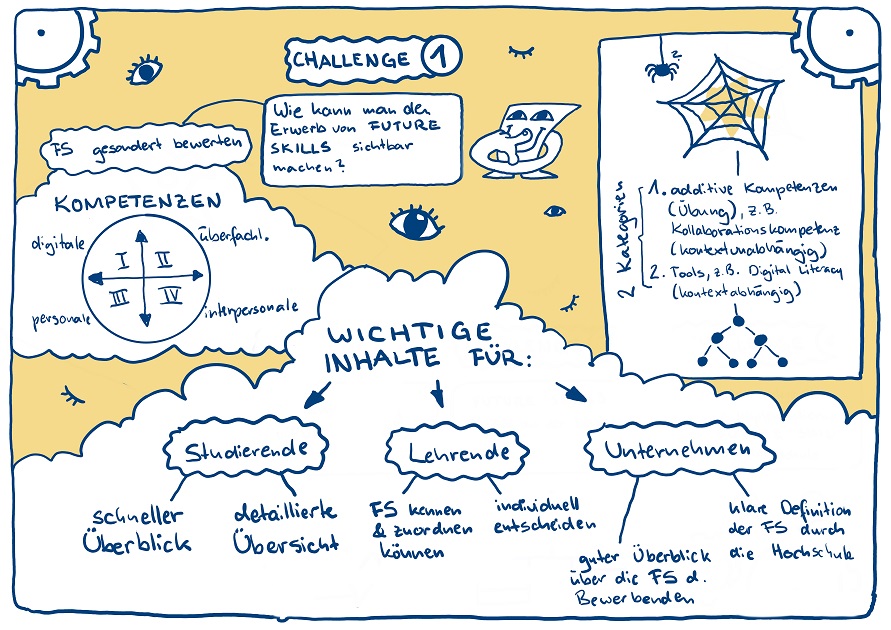 CHALLENGE 1
Wie kann man den
Erwerb von FUTURE
SKILLS sichtbar
machen?
FS gesondert bewerten
KOMPETENZEN
digitale
überfachl.
I II
III IV
personale
interpersonale
?
2 Kategorien
1. additive Kompetenzen
(Übung), z.B.
Kollaborationskompetenz
(kontextunabhängig)
2. Tools, z.B. Digital Literacy
(kontextabhängig)
WICHTIGE
INHALTE FÜR:
Studierende
schneller
Überblick
detaillierte
Übersicht
Lehrende
FS kennen
& zuordnen
können
individuell
entscheiden
Unternehmen
guter Überblick
über die FS d.
Bewerbenden
klare Definition
der FS durch
die Hochschule